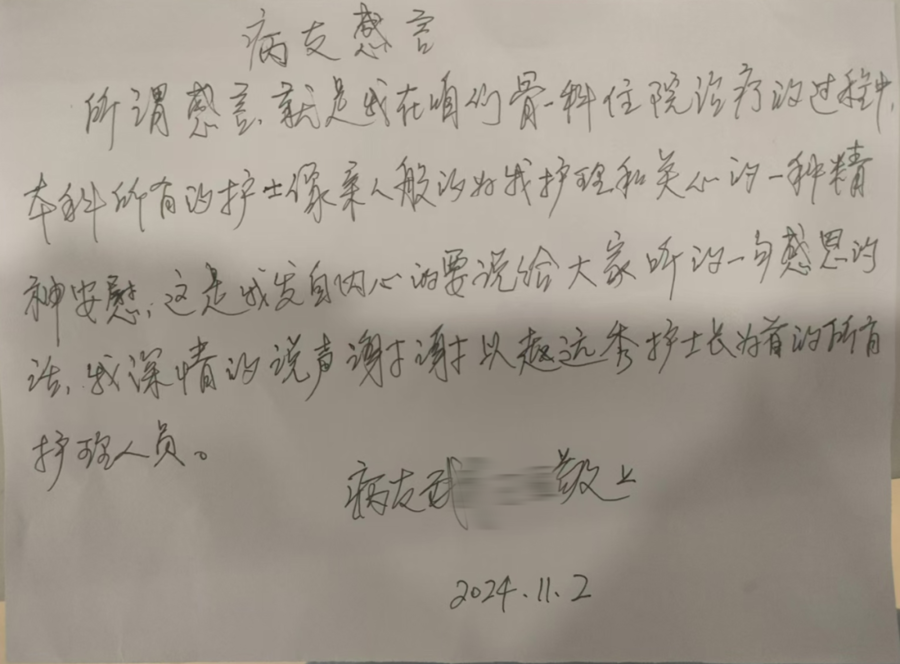 病友感言
所谓感言,就是我在咱们骨一科住院治疗的过程中,
本科所有的护士像亲人般的对我护理和关心的一种精
神安慰,这是我发自内心的要说给大家听的一句感恩的
话,我深情的说声谢谢谢谢以赵远秀护士长为首的所有
护理人员。
病友武 敬上
2024.11.2